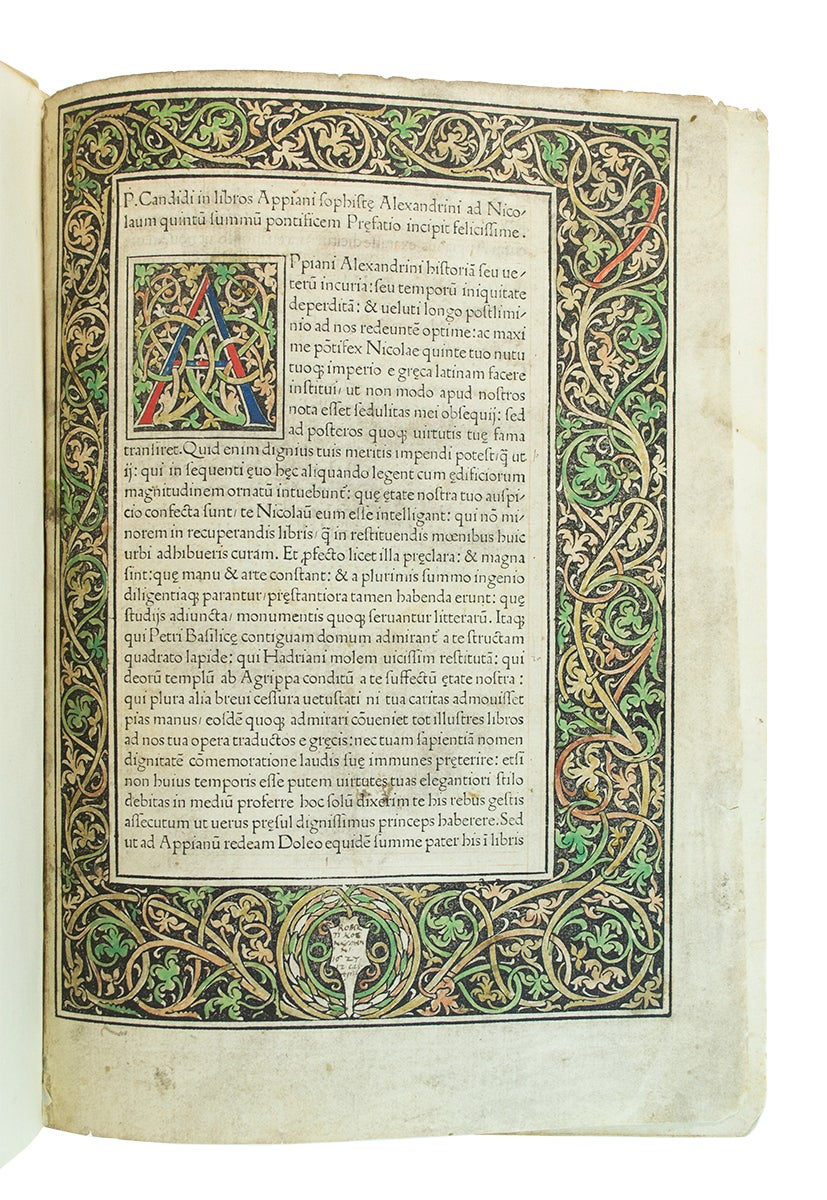 P. Candidi in libros Appiani sophistę Alexandrini ad Nico/
laum quintū summū pontificem Pręfatio incipit felicissime.
APpiani Alexandrini historiā seu ue/
terū incuria: seu temporū iniquitate
deperditā: & ueluti longo postlimi/
nio ad nos redeuntē optime: ac maxi
me pōtifex Nicolae quinte tuo nutu
tuoqꝫ imperio e gręca latinam facere
institui/ ut non modo apud nostros
nota esset sedulitas mei obsequij: sed
ad posteros quoqꝫ uirtutis tuę fama
transiret. Quid enim dignius tuis meritis impendi potest/ q̄ ut
ij: qui in sequenti ęuo hęc aliquando legent cum ędificiorum
magnitudinem ornatū intuebunt᷑: quę ętate nostra tuo auspi/
cio confecta sunt/ te Nicolaū eum esse intelligant: qui nō mi/
norem in recuperandis libris/ q̄ in restituendis mœnibus huic
urbi adhibueris curam. Et ꝓfecto licet illa pręclara: & magna
sint: quę manu & arte constant: & a plurimis summo ingenio
diligentiaqꝫ parantur/ pręstantiora tamen habenda erunt: quę
studijs adiuncta/ monumentis quoqꝫ seruantur litterarū. Itaqꝫ
qui Petri Basilicę contiguam domum admirant᷑ a te structam
quadrato lapide: qui Hadriani molem uicissim restitutā: qui
deorū templū ab Agrippa conditū a te suffectū ętate nostra:
qui plura alia breui cessura uetustati ni tua caritas admouisset
pias manus/ eosdē quoqꝫ admirari cōueniet tot illustres libros
ad nos tua opera traductos e gręcis: nec tuam sapientiā nomen
dignitatē cōmemoratione laudis suę immunes pręterire: etsi
non huius temporis esse putem uirtutes tuas elegantiori stilo
debitas in mediū proferre hoc solū dixerim te his rebus gestis
assecutum ut uerus pręsul dignissimus princeps haberere. Sed
ut ad Appianū redeam Doleo equidē summe pater his ī libris